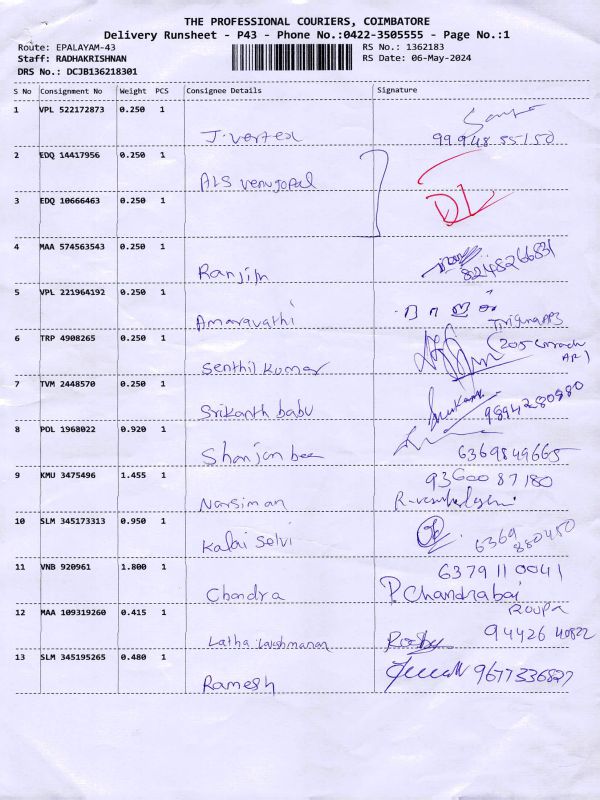 THE PROFESSIONAL COURIERS, COIMBATORE
Delivery Runsheet - P43 - Phone No.:0422-3505555 - Page No.:1
Route: EPALAYAM-43 RS No.: 1362183
Staff: RADHAKRISHNAN RS Date: 06-May-2024
DRS No.: DCJB136218301
S No Consignment No Weight PCS Consignee Details Signature
1 VPL 522172873 0.250 1
J. vertex 99948 55150
2 EDQ 14417956 0.250 1
ALS venugopal
3 EDQ 10666463 0.250 1
DL
4 MAA 574563543 0.250 1
Ranjith 8248266831
5 VPL 221964192 0.250 1
Amaravathi
6 TRP 4908265 0.250 1
Senthil kumar
7 TVM 2448570 0.250 1
Srikanth babu 9894280980
8 POL 1968022 0.920 1
Shanjan bee 6369849665
9 KMU 3475496 1.455 1 9360087180
Narsiman
10 SLM 345173313 0.950 1
Kalai Selvi 6369 880450
11 VNB 920961 1.800 1 6379110041
Chandra P. Chandrabai
12 MAA 109319260 0.415 1 ROUPA
Latha lakshmanan 94426 40822
13 SLM 345195265 0.480 1
Ramesh 9677336827